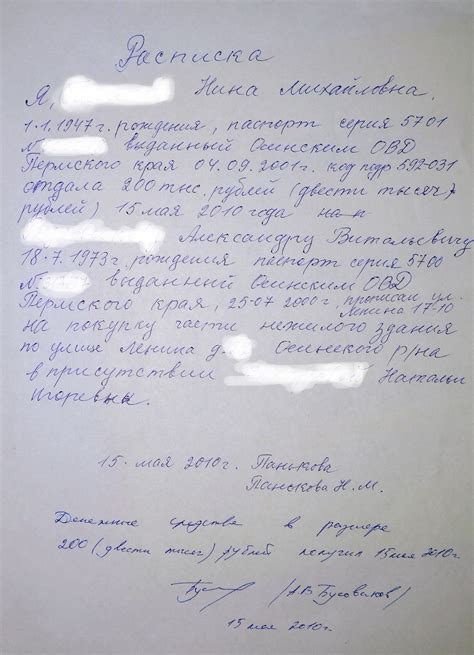 Расписка
Я, Нина Михайловна,
1.1.1947 г. рождения, паспорт серия 5701
N выданный Осинским ОВД
Пермского края 04.09.2001г. код подр 592-031
отдала 200 тыс. рублей (двести тысяч
рублей) 15 мая 2010 года
Александру Витальевичу
18.7.1973 г. рождения паспорт серия 5700
N выданный Осинским ОВД
Пермского края, 25-07 2000г, прописан ул.
Ленина 17-10
на покупку части нежилого здания
по улице Ленина д. Осинского р/на
в присутствии Натальи
Игоревны.
15. мая 2010 г. Панькова
Н.М.
Денежные средства в размере
200 (двести тысяч) рублей получил 15 мая 2010г.
15 мая 2010г.